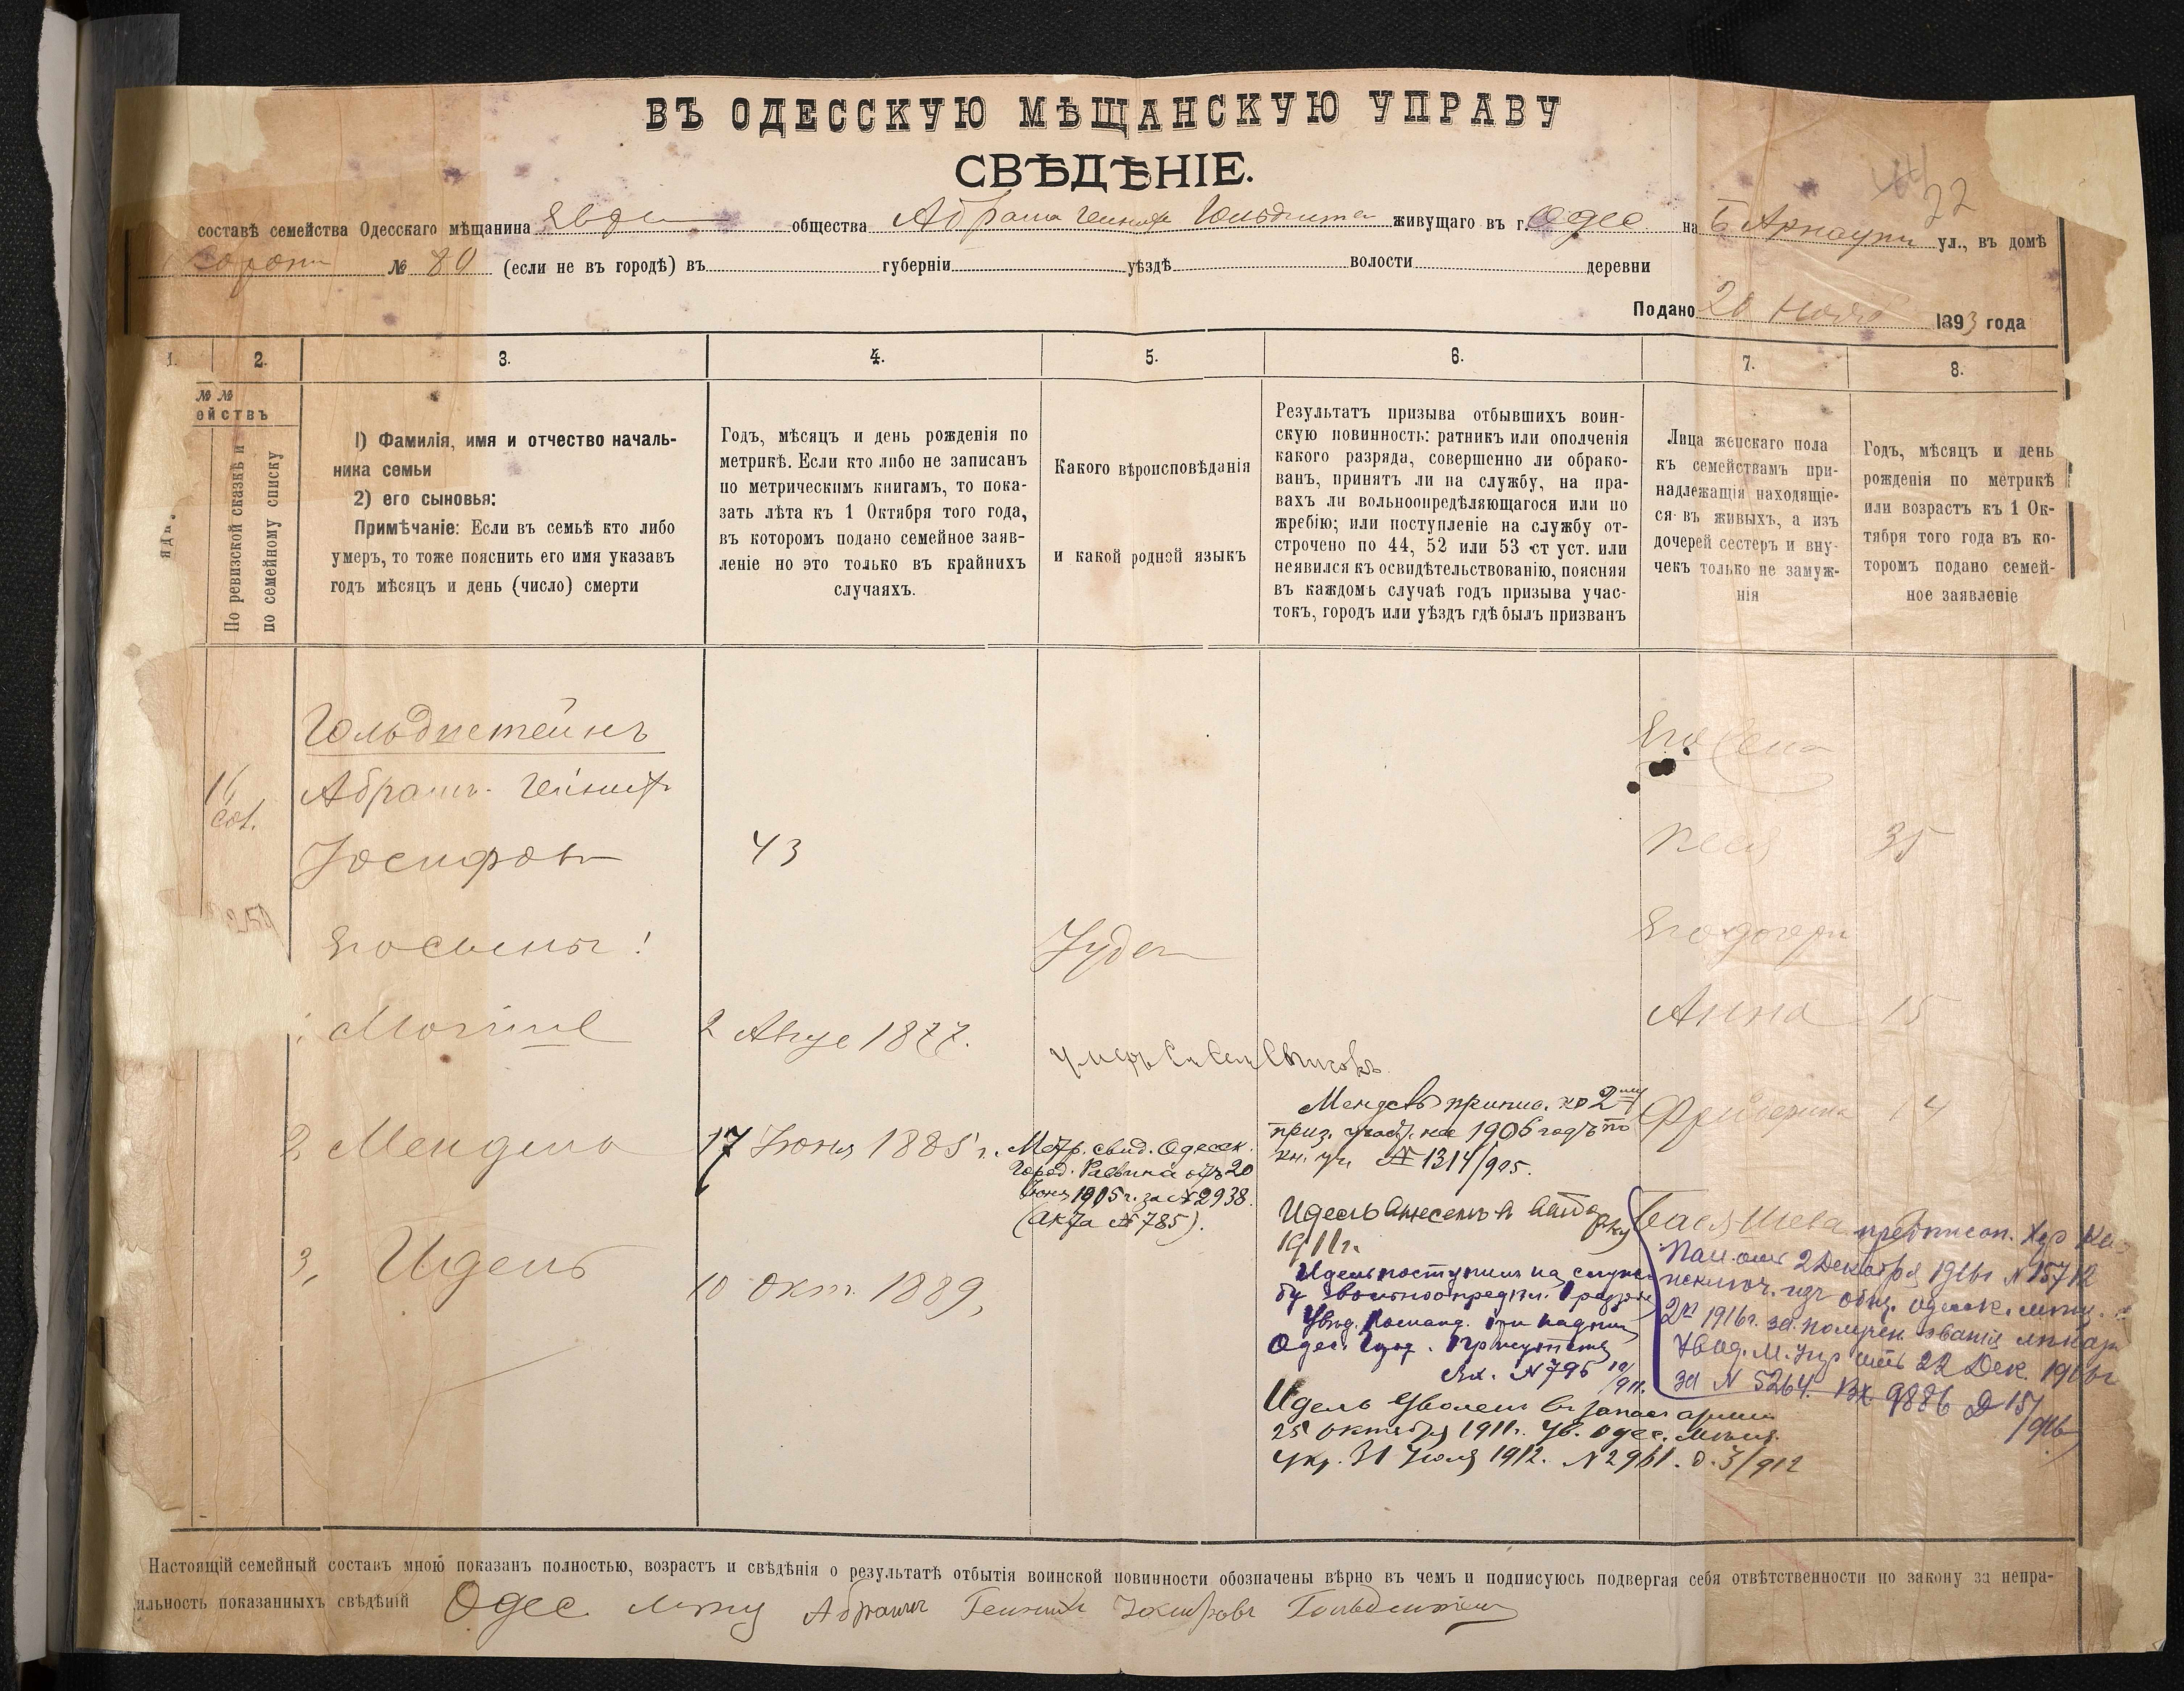 ВЪ ОДЕССКУЮ МѢЩАНСКУЮ УПРАВУ
СВѢДѢНІЕ.
22
составѣ семейства Одесскаго мѣщанина общества Абрама Гольдштей живущаго въ г. Одес на Б Арнаутск ул., въ домѣ
№ 80 (если не въ городѣ) въ губерніи уѣздѣ волости деревни
Подано 20 Нояб 1893 года
1. 2. 3. 4. 5. 6. 7. 8.
№ №
ействъ
По ревизской сказкѣ и
по семейному списку
1) Фамилія, имя и отчество началь-
ника семьи
2) его сыновья:
Примѣчаніе: Если въ семьѣ кто либо
умеръ, то тоже пояснить его имя указавъ
годъ мѣсяцъ и день (число) смерти
Годъ, мѣсяцъ и день рожденія по
метрикѣ. Если кто либо не записанъ
по метрическимъ книгамъ, то пока-
зать лѣта къ 1 Октября того года,
въ которомъ подано семейное заяв-
леніе но это только въ крайнихъ
случаяхъ.
Какого вѣроисповѣданія
и какой родной языкъ
Результатъ призыва отбывшихъ воин-
скую повинность: ратникъ или ополченія
какого разряда, совершенно ли обрако-
ванъ, принятъ ли на службу, на пра-
вахъ ли вольноопредѣляющагося или по
жребію; или поступленіе на службу от-
строчено по 44, 52 или 53 ст уст. или
неявился къ освидѣтельствованію, поясняя
въ каждомъ случаѣ годъ призыва учас-
токъ, городъ или уѣздъ гдѣ былъ призванъ
Лица женскаго пола
къ семействамъ при-
надлежащія находящіе-
ся въ живыхъ, а изъ
дочерей сестеръ и вну-
чекъ только не замуж-
нія
Годъ, мѣсяцъ и день
рожденія по метрикѣ
или возрастъ къ 1 Ок-
тября того года въ ко-
торомъ подано семей-
ное заявленіе
Гольдштейнъ
Абрамъ
Іосифов 43
35
Его сыны! Іудей
2 Авгус 1877.
Анна 15
2 Мендель 17 Іюня 1885 г.
14
Метр. свид. Одесск.
Город. Раввина отъ 20
Іюня 1905 г. за № 2938.
(акта № 785).
Мендель припис. ко 2му
приз. участ. на 1906 годъ по
кн. уч № 1314/905.
3, Идель 10 Окт. 1889,
Идель внесенъ в
1911г.
Идель поступилъ на служ-
бу
Увѣд. Команд.
Одес. Присутств
Вх. № 795 /911.
Идель Уволенъ въ запасъ арміи
25 октября 1911г. Ув. Одес. Мѣщ.
Упр. 31 Іюля 1912. № 2961. д. 3/912
Бася Шева предписан.
отъ 2 Декабря 1916г № 15712
исключ. изъ общ. Одесск. мѣщ.
1916г. за получен. званія лѣкар
Увед. М. Упр отъ 22 Дек. 1916г
за № 5264. Вх 9886 Д 15/
/916
Настоящій семейный составъ мною показанъ полностью, возрастъ и свѣдѣнія о результатѣ отбытія воинской повинности обозначены вѣрно въ чемъ и подписуюсь подвергая себя отвѣтственности по закону за непра-
ильность показанныхъ свѣдѣній Одес мѣщ Абрамъ Іосифовъ Гольдштейн